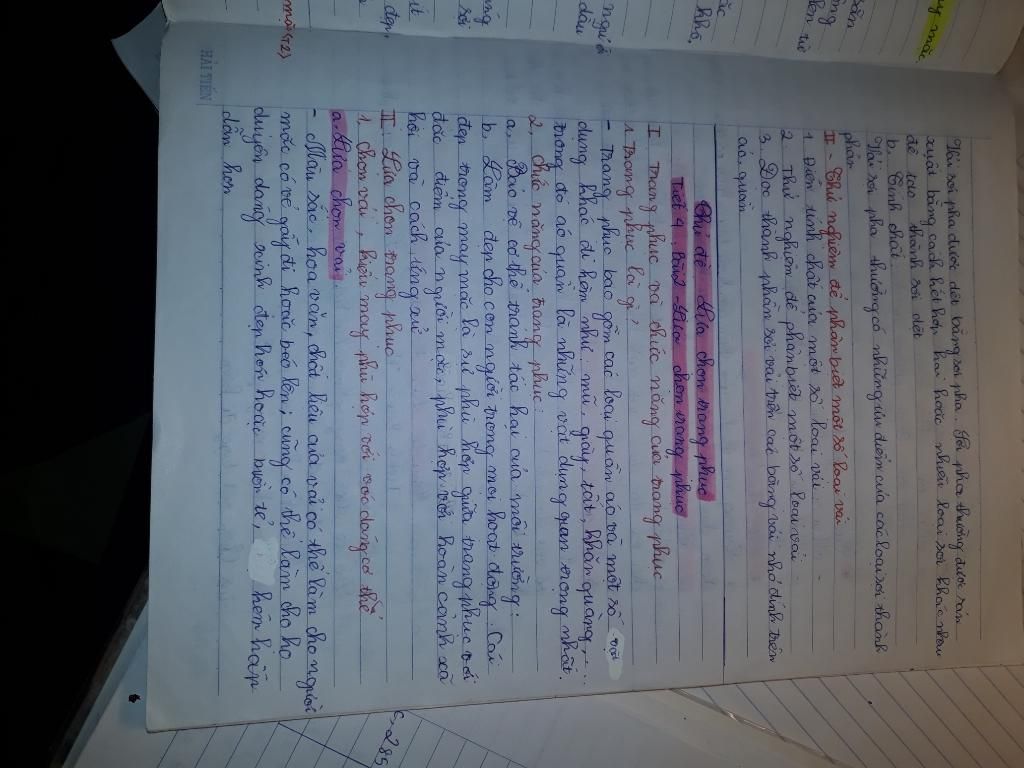 Vải sợi pha được dệt bằng sợi pha. Sợi pha thường được sản
xuất bằng cách kết hợp hai hoặc nhiều loại sợi khác nhau
để tạo thành sợi dệt
b. Tính chất
Vải sợi pha thường có những ưu điểm của các loại sợi thành
phần
II - Thử nghiệm để phân biệt một số loại vải
1. Điền tính chất của một số loại vải
2. Thử nghiệm để phân biệt một số loại vải
3. Đọc thành phần sợi vải trên các băng vải nhỏ đính trên
áo, quần
Chủ đề Lựa chọn trang phục
Tiết 4. Bài 2 - Lựa chọn trang phục
I. Trang phục và chức năng của trang phục
1. Trang phục là gì?
- Trang phục bao gồm các loại quần áo và một số vật
dụng khác đi kèm như mũ, giày, tất, khăn quàng,...
trong đó áo quần là những vật dụng quan trọng nhất.
2. chức năng của trang phục:
a. Bảo vệ cơ thể tránh tác hại của môi trường:
b. Làm đẹp cho con người trong mọi hoạt động. Cái
đẹp trong may mặc là sự phù hợp giữa trang phục với
đặc điểm của người mặc, phù hợp với hoàn cảnh xã
hội và cách ứng xử
II. Lựa chọn trang phục
1. chọn vải, kiểu may phù hợp với vóc dáng cơ thể
a. Lựa chọn vải
- Màu sắc, hoa văn, chất liệu của vải có thể làm cho người
mặc có vẻ gầy đi hoặc béo lên; cũng có thể làm cho họ
duyên dáng xinh đẹp hơn hoặc buồn tẻ, kém hấp
dẫn hơn
HẢI TIẾN